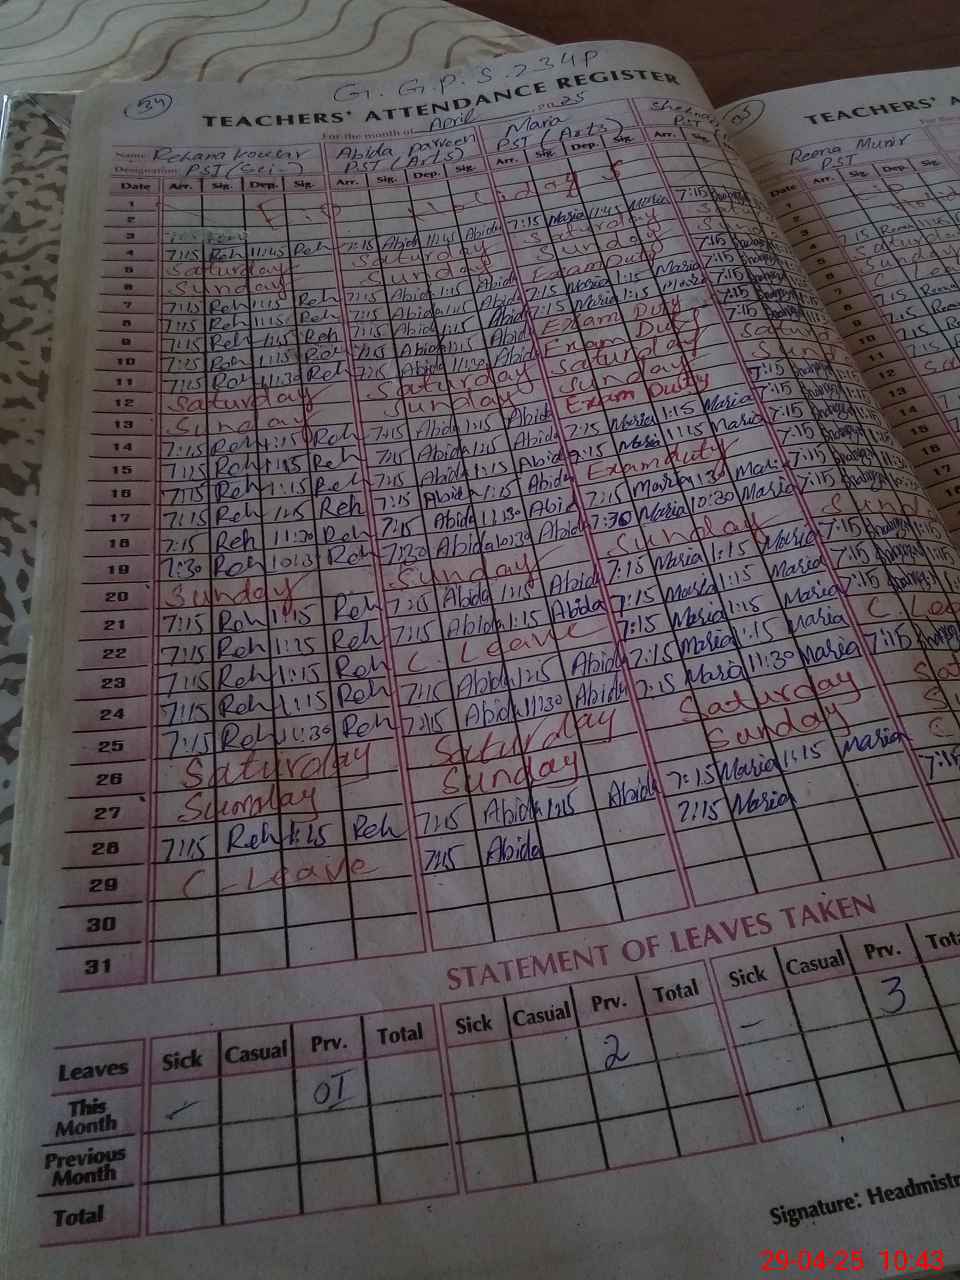 34
G.G.P.S.234P
TEACHERS' ATTENDANCE REGISTER
For the month of April 2025
Name Rehana Kousar Abida Parveen Maria
Designation PST (Sci) PST (Arts) PST (Arts)
Date Arr. Sig. Dep. Sig. Arr. Sig. Dep. Sig. Arr. Sig. Dep. Sig. Arr. Sig.
1
2
3
4 7:15 Reh 11:45 Reh 7:15 Abida 11:45 Abida 7:15 Maria 11:45 Maria 7:15
5 Saturday Saturday Saturday
6 Sunday Sunday Sunday
7 7:15 Reh 1:15 Reh 7:15 Abida 1:15 Abida Exam Duty 7:15
8 7:15 Reh 1:15 Reh 7:15 Abida 1:15 Abida 7:15 Maria 1:15 Maria 7:15
9 7:15 Reh 1:15 Reh 7:15 Abida 1:15 Abida 7:15 Maria 1:15 Maria 7:15
10 7:15 Reh 1:15 Reh 7:15 Abida 1:15 Abida Exam Duty 7:15
11 7:15 Reh 11:30 Reh 7:15 Abida 11:30 Abida Exam Duty 7:15
12 Saturday Saturday Saturday
13 Sunday Sunday Sunday
14 7:15 Reh 1:15 Reh 7:15 Abida 1:15 Abida Exam Duty 7:15
15 7:15 Reh 1:15 Reh 7:15 Abida 1:15 Abida 7:15 Maria 1:15 Maria 7:15
16 7:15 Reh 1:15 Reh 7:15 Abida 1:15 Abida 7:15 Maria 1:15 Maria 7:15
17 7:15 Reh 1:15 Reh 7:15 Abida 1:15 Abida Exam duty 7:15
18 7:15 Reh 11:30 Reh 7:15 Abida 11:30 Abida 7:15 Maria 11:30 Maria 7:15
19 7:30 Reh 10:30 Reh 7:30 Abida 10:30 Abida 7:30 Maria 10:30 Maria 7:15
20 Sunday Sunday Sunday
21 7:15 Reh 1:15 Reh 7:15 Abida 1:15 Abida 7:15 Maria 1:15 Maria 7:15
22 7:15 Reh 1:15 Reh 7:15 Abida 1:15 Abida 7:15 Maria 1:15 Maria 7:15
23 7:15 Reh 1:15 Reh C. Leave 7:15 Maria 1:15 Maria 7:15
24 7:15 Reh 1:15 Reh 7:15 Abida 1:15 Abida 7:15 Maria 1:15 Maria
25 7:15 Reh 11:30 Reh 7:15 Abida 11:30 Abida 7:15 Maria 11:30 Maria 7:15
26 Saturday Saturday Saturday
27 Sunday Sunday Sunday
28 7:15 Reh 1:15 Reh 7:15 Abida 1:15 Abida 7:15 Maria 1:15 Maria
29 C-Leave 7:15 Abida 7:15 Maria 7:15
30
31
STATEMENT OF LEAVES TAKEN
Leaves Sick Casual Prv. Total Sick Casual Prv. Total Sick Casual Prv.
This Month 01 2 - 3
Previous Month
Total
Signature: Headmistr
05
TEACHERS' A
Reena Munir
PST
Date Arr. Sig. Dep.
1
2
3
4
5
6
7
8
9
10
11
12
13
14
15
16
17
29-04-25 10:43